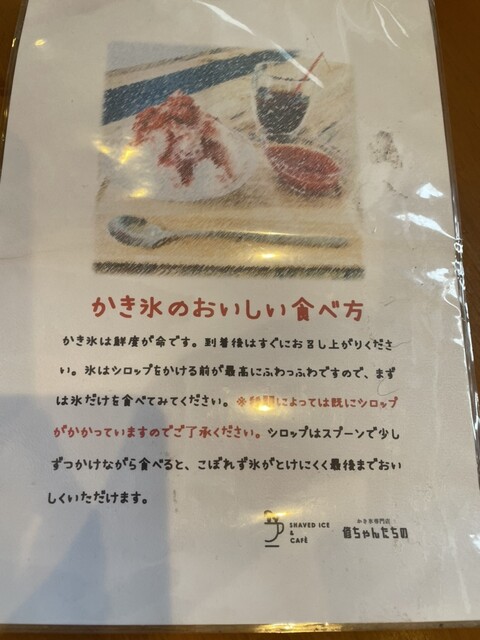 かき氷のおいしい食べ方
かき氷は鮮度が命です。到着後はすぐにお召し上がりくださ
い。氷はシロップをかける前が最高にふわっふわですので、まず
は氷だけを食べてみてください。※種類によっては既にシロップ
がかかっていますのでご了承ください。シロップはスプーンで少し
ずつかけながら食べると、こぼれず氷がとけにくく最後までおい
しくいただけます。
SHAVED ICE
&
CAFÉ
かき氷専門店
ちゃんたちの